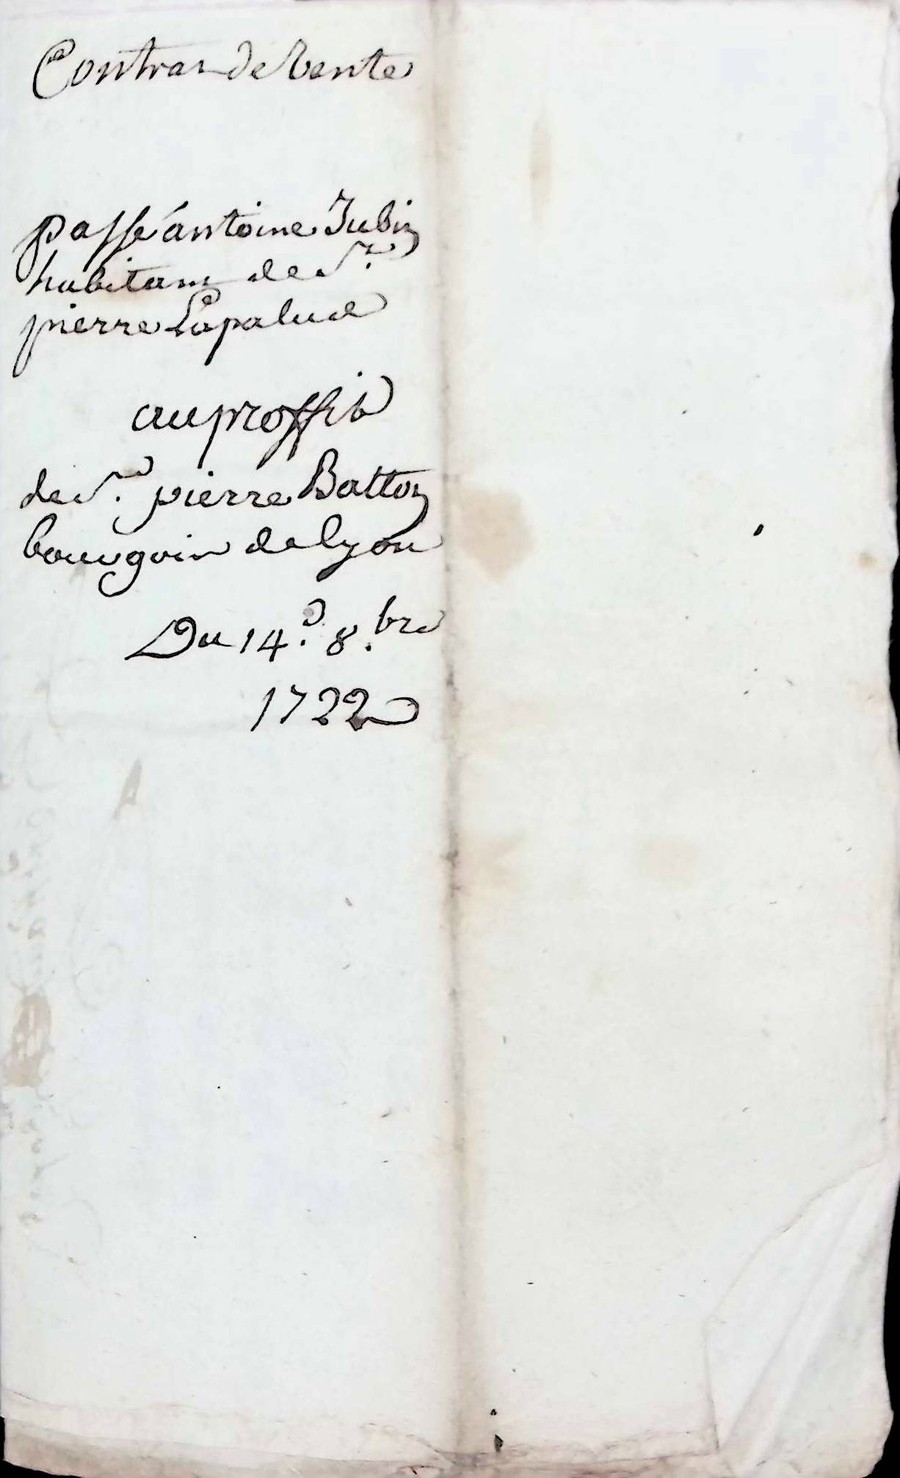 Contrat de Vente
passé antoine Jubin
habitant de St
pierre Lapalud
au proffit
de Sr. pierre Batton
bourgois de lyon
Du 14e. 8.bre
1722